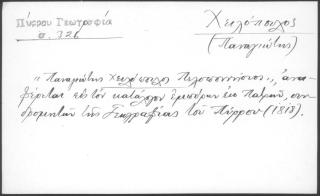 Πύρρου Γεωγραφία
σ. 326
Χειλόπουλος
(Παναγιώτης)
"Παναγιώτης Χειλόπουλος Πελοποννήσιος", ἀνα-
φέρεται εἰς τὸν κατάλογον ἐμπόρων ἐκ Πατρῶν, συν-
δρομητῶν τῆς Γεωγραφίας τοῦ Πύρρου (1818).